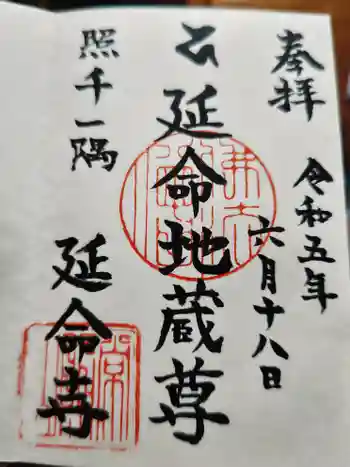 奉拝
令和五年
六月十八日
延命地蔵尊
照千一隅
延命寺